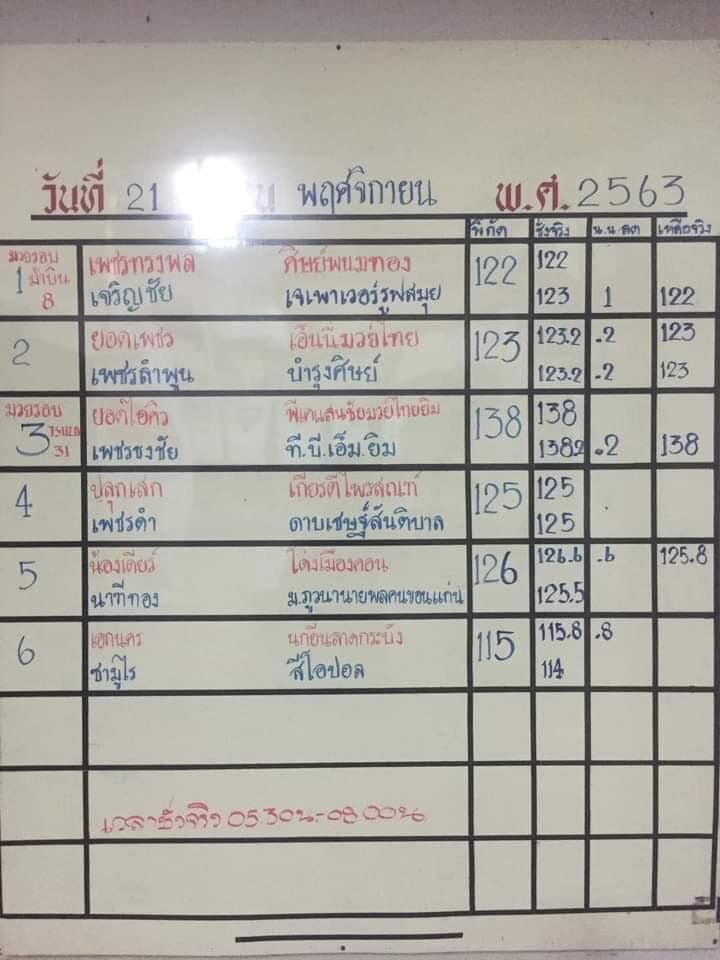 วันที่ 21 พฤศจิกายน พ.ศ. 2563
พิกัด ชั่งจริง น.น.ลด เหลือจริง
มวยรอบ เพชรทรงพล ศิษย์พนมทอง 122 122
1 ม้าบิน 8 เจริญชัย เจเพาเวอร์รูฟสมุย 123 1 122
2 ยอดเพชร เอ็นนี่มวยไทย 123 123.2 .2 123
เพชรลำพูน บำรุงศิษย์ 123.2 .2 123
มวยรอบ ยอดไอคิว 138 138
3 31 เพชรธงชัย ที.บี.เอ็ม.ยิม 138.2 .2 138
4 ปลุกเสก เกียรติไพรสณฑ์ 125 125
เพชรดำ ดาบเชษฐ์สันติบาล 125
5 น้องเดียร์ โด่งเมืองคอน 126 126.6 .6 125.8
นาทีทอง ม.ภูวนานายพลคนขอนแก่น 125.5
6 เอกนคร นกอินลาดกระบัง 115 115.8 .8
ซามูไร สีโอปอล 114
เวลาชั่งจริง 05.30น-08.00น